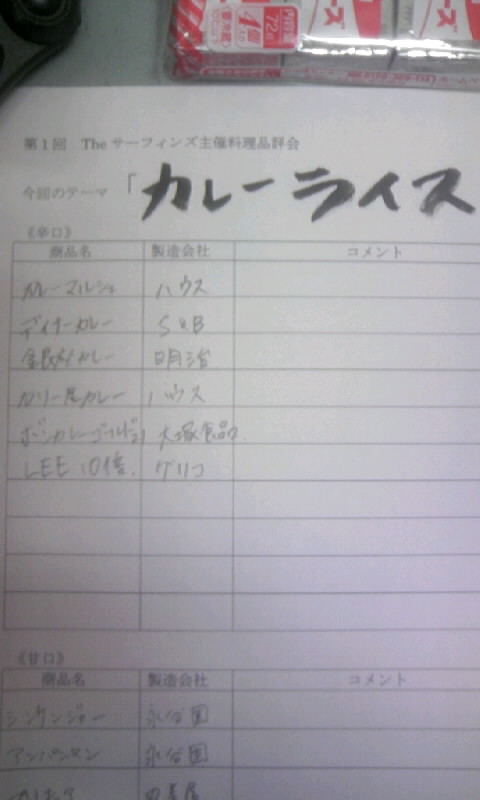 4個
72
ーズ
第1回 The サーフィンズ主催料理品評会
今回のテーマ 「カレーライス
《辛口》
商品名 製造会社 コメント
カレーマルシェ ハウス
ディナーカレー S&B
銀座カレー 明治
カリー屋カレー ハウス
ボンカレーゴールド21 大塚食品
LEE 10倍 グリコ
《甘口》
商品名 製造会社 コメント
シンケンジャー 永谷園
アンパンマン 永谷園